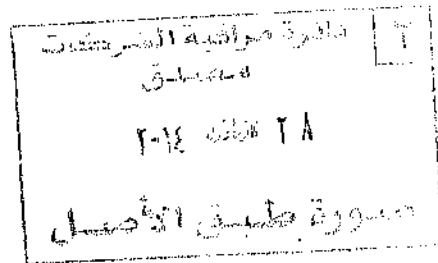 دائرة مراقبة الشركات
٢
٢٨ ٢٠١٤
صورة طبق الأصل